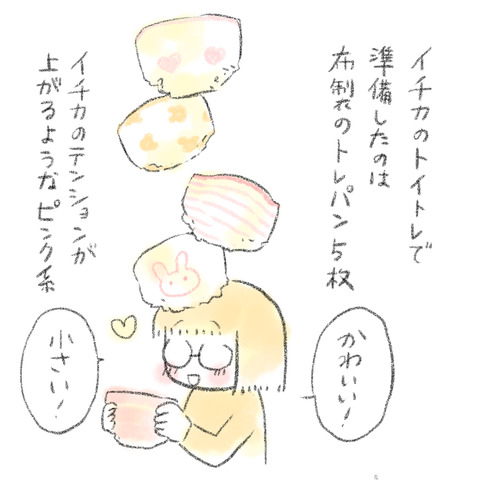 イチカのトイトレで
準備したのは
布製のトレパン5枚
イチカのテンションが
上がるようなピンク系
かわいい!
小さい!